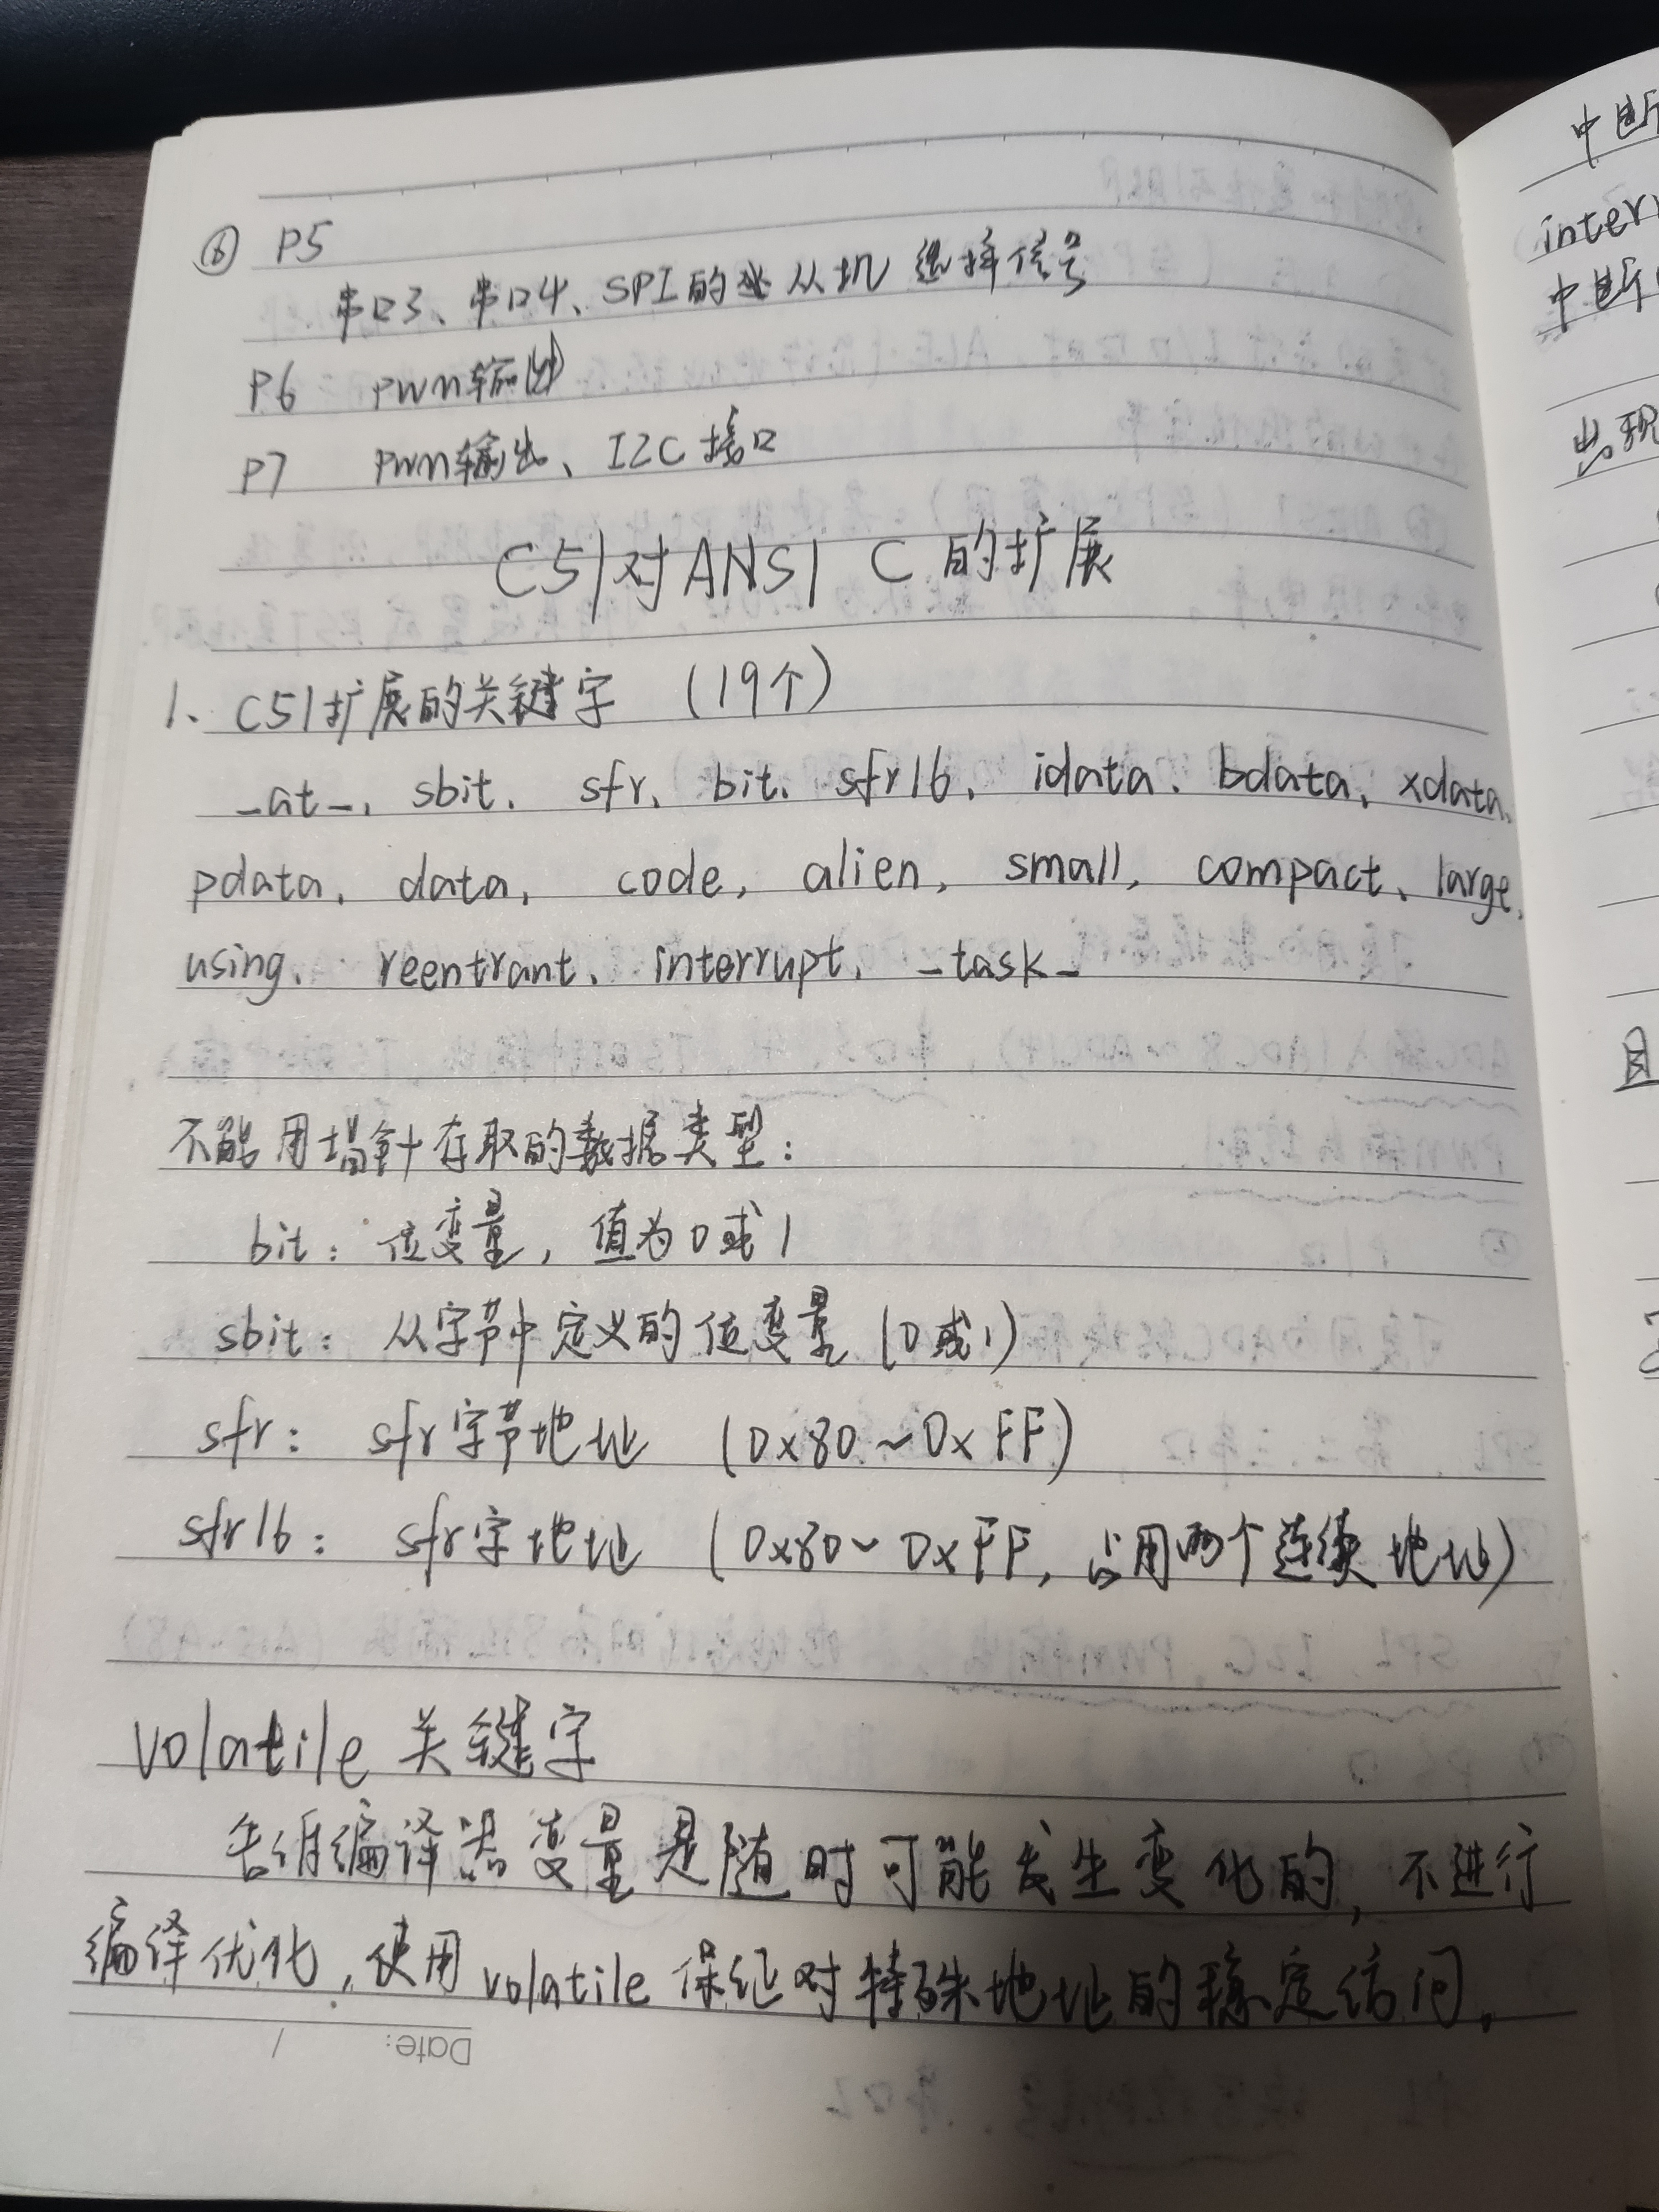 ⑥ P5
串口3、串口4、SPI的从机选择信号
P6 PWM输出
P7 PWM输出、I2C接口
C51对ANSI C的扩展
1、C51扩展的关键字 (19个)
_at_、sbit、sfr、bit、sfr16、idata、bdata、xdata、
pdata、data、code、alien、small、compact、large、
using、reentrant、interrupt、_task_
不能用指针存取的数据类型：
bit：位变量，值为0或1
sbit：从字节中定义的位变量 (0或1)
sfr：sfr字节地址 (0x80~0xFF)
sfr16：sfr字地址 (0x80~0xFF，占用两个连续地址)
volatile 关键字
告诉编译器变量是随时可能发生变化的，不进行
编译优化，使用volatile保证对特殊地址的稳定访问。
Date: /
中断
inter
中断
出现
且